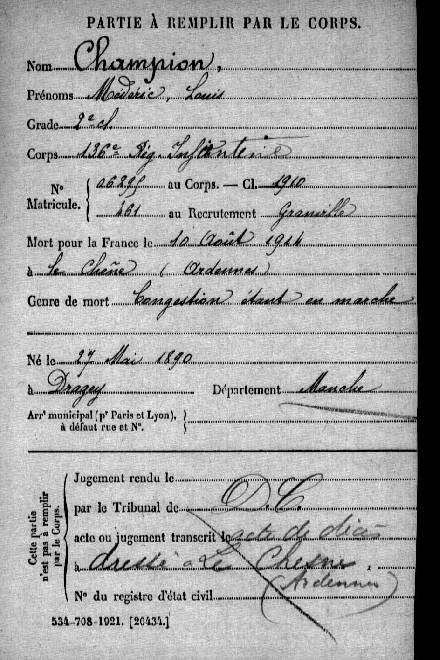 PARTIE À REMPLIR PAR LE CORPS.
Nom Champion,
Prénoms Médéric, Louis
Grade 2e cl.
Corps 136e Rég. Infanterie
N° Matricule. { 06295 au Corps. — Cl. 1910
461 au Recrutement Granville
Mort pour la France le 10 Août 1914
à Le Chêne (Ardennes)
Genre de mort Congestion étant en marche
Né le 27 Mai 1890
à Dragey Département Manche
Arrt municipal (pr Paris et Lyon), à défaut rue et N°. }
Cette partie n'est pas à remplir par le Corps.
Jugement rendu le
par le Tribunal de D.C.
acte ou jugement transcrit le acte de décès
à dressé à Le Chesne,
(Ardennes)
N° du registre d'état civil
534-708-1921. [26434.]